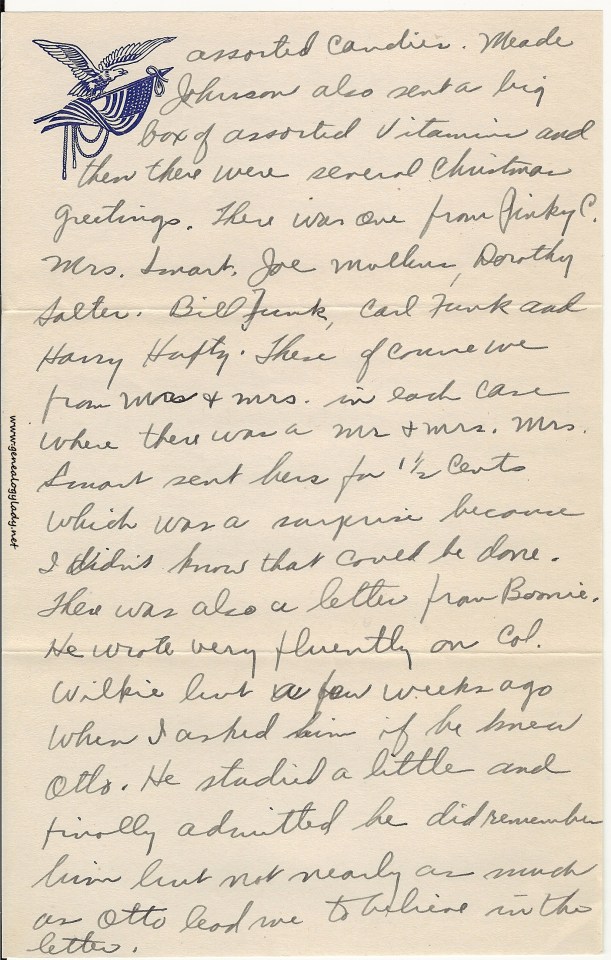 assorted candies. Meade
Johnson also sent a big
box of assorted Vitamins and
then there were several Christmas
greetings. There was one from Pinky C.
Mrs. Smart, Joe Mullins, Dorothy
Salter. Bill Funk, Carl Funk and
Harry Hafty. These of course we
from Mrs & Mrs. in each case
where there was a Mr & Mrs. Mrs.
Smart sent hers for 1½ Cents
which was a surprise because
I didn't know that could be done.
There was also a letter from Boonie.
He wrote very fluently on Col.
Wilkie but a few weeks ago
when I asked him if he knew
Otto. He studied a little and
finally admitted he did remember
him but not nearly as much
as Otto lead me to believe in the
letter.
www.genealogylady.net